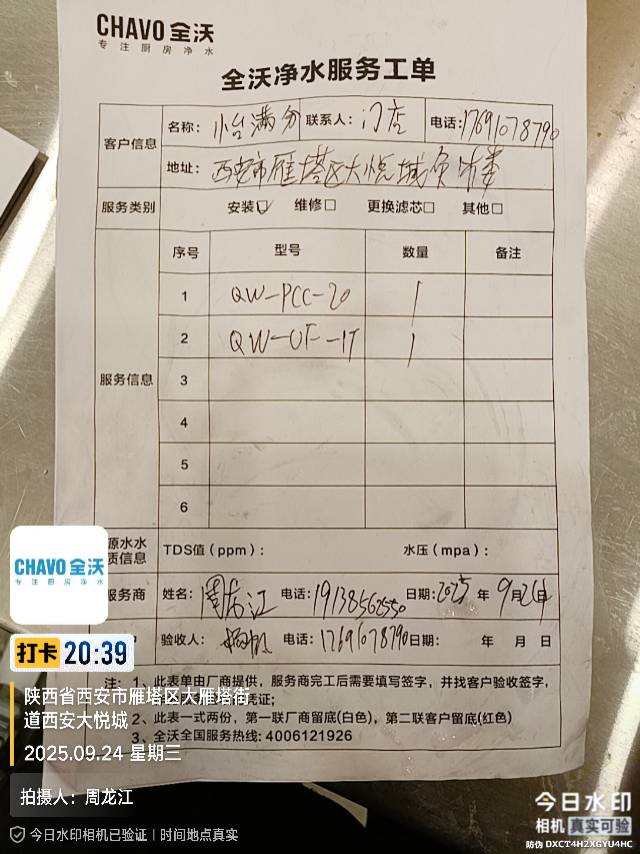 CHAVO 全沃
专注厨房净水
全沃净水服务工单
客户信息 名称: 小台满分 联系人: 门店 电话: 17691078790
地址: 西安市雁塔区大悦城负
服务类别 安装☑ 维修□ 更换滤芯□ 其他□
服务信息 序号 型号 数量 备注
1 QW-PCC-20 1
2 QW-UF-1T 1
3
4
5
6
源水水质信息 TDS值(ppm): 水压(mpa):
服务商 姓名: 周龙江 电话: 19138562550 日期: 2025年 9月24
验收人: 电话: 17691078790 日期: 年 月 日
注: 1、此表单由厂商提供,服务商完工后需要填写签字,并找客户验收签字,
凭证;
2、此表一式两份,第一联厂商留底(白色),第二联客户留底(红色)
3、全沃全国服务热线: 4006121926
CHAVO 全沃
专注厨房净水
打卡 20:39
陕西省西安市雁塔区大雁塔街
道西安大悦城
2025.09.24 星期三
拍摄人: 周龙江
今日水印相机已验证 | 时间地点真实
今日水印
相机 真实可验
防伪 DXCT4H2XGYU4HC